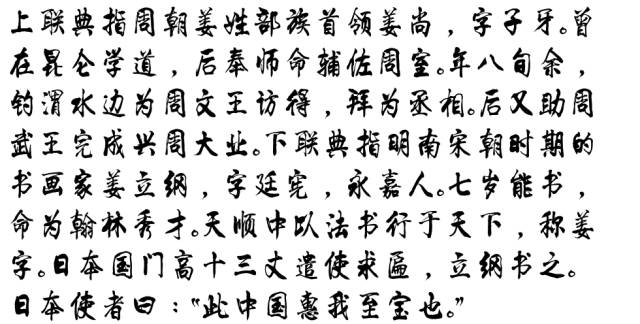 上联典指周朝姜姓部族首领姜尚，字子牙。曾
在昆仑学道，后奉师命辅佐周室。年八旬余，
钓渭水边为周文王访得，拜为丞相。后又助周
武王完成兴周大业。下联典指明南宋朝时期的
书画家姜立纲，字廷宪，永嘉人。七岁能书，
命为翰林秀才。天顺中以法书行于天下，称姜
字。日本国门高十三丈遣使求匾，立纲书之。
日本使者曰：“此中国惠我至宝也。”